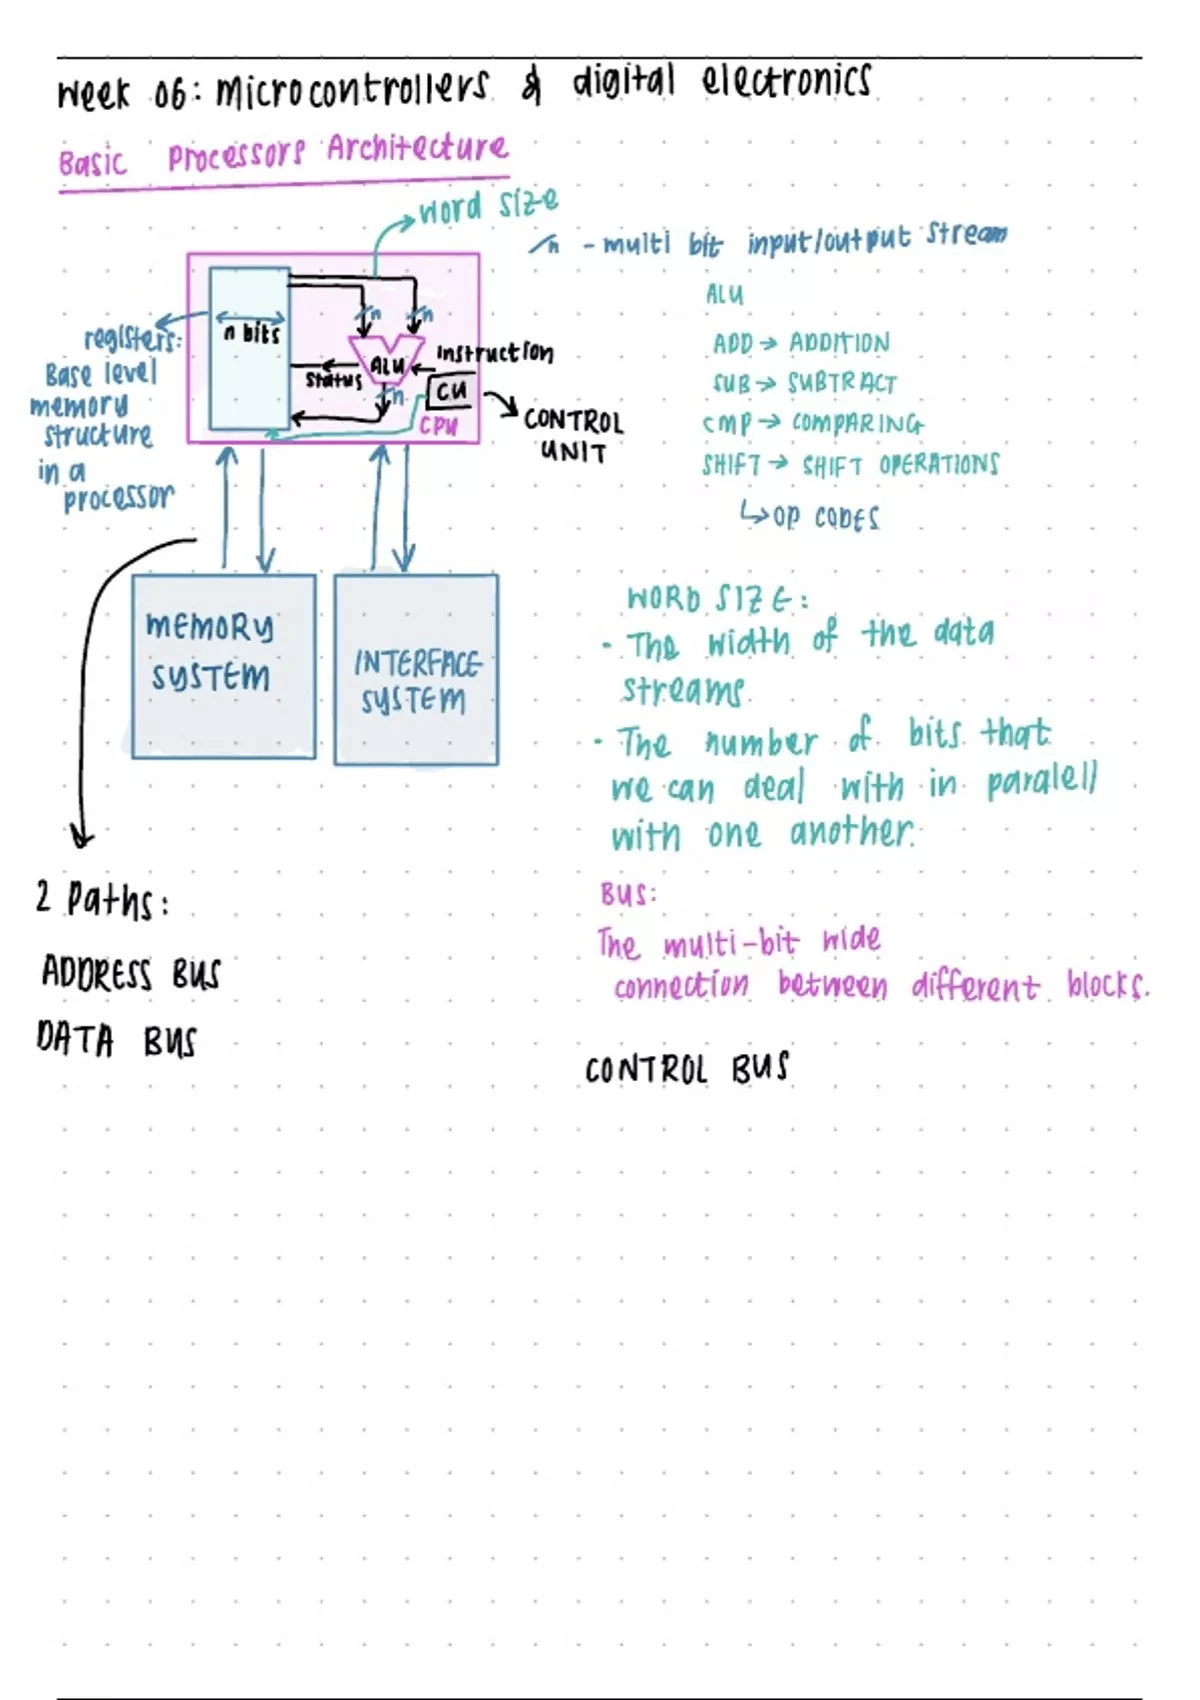 Week 06: Microcontrollers & digital electronics
Basic Processors Architecture
word size
/n - multi bit input/output stream
n bits
n
n
ALU
instruction
status
n
CU
CPU
CONTROL
UNIT
registers:
Base level
memory
structure
in a
processor
ALU
ADD → ADDITION
SUB → SUBTRACT
CMP → COMPARING
SHIFT → SHIFT OPERATIONS
↳ OP CODES
MEMORY
SYSTEM
INTERFACE
SYSTEM
WORD SIZE:
- The width of the data
streams
- The number of bits that
we can deal with in paralell
with one another.
2 Paths:
ADDRESS BUS
DATA BUS
BUS:
The multi-bit wide
connection between different blocks.
CONTROL BUS